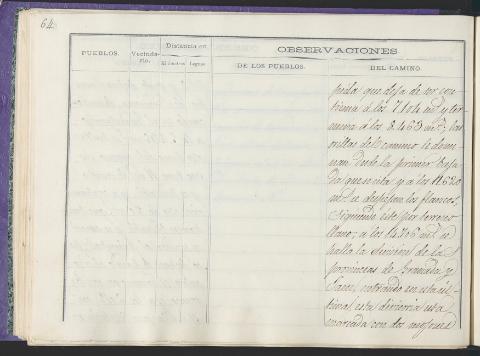 64.
PUEBLOS.
Vecinda-
rio.
Distancia en
Kilómetros
Leguas
OBSERVACIONES.
DE LOS PUEBLOS.
DEL CAMINO.
que deja de ser con-
tinua á los 7.404 mt.s y ter-
mina á los 8.463 mt.s; las
orillas del camino le domi-
nan desde la primer
y á los 11.620
mt.s se despejan los flancos.
Siguiendo este por terreno
llano; a los 14.706 mt.s se
halla la división de las
provincias de Granada y
Jaen, entrando en esta úl-
tima; esta divisoria esta
marcada con dos